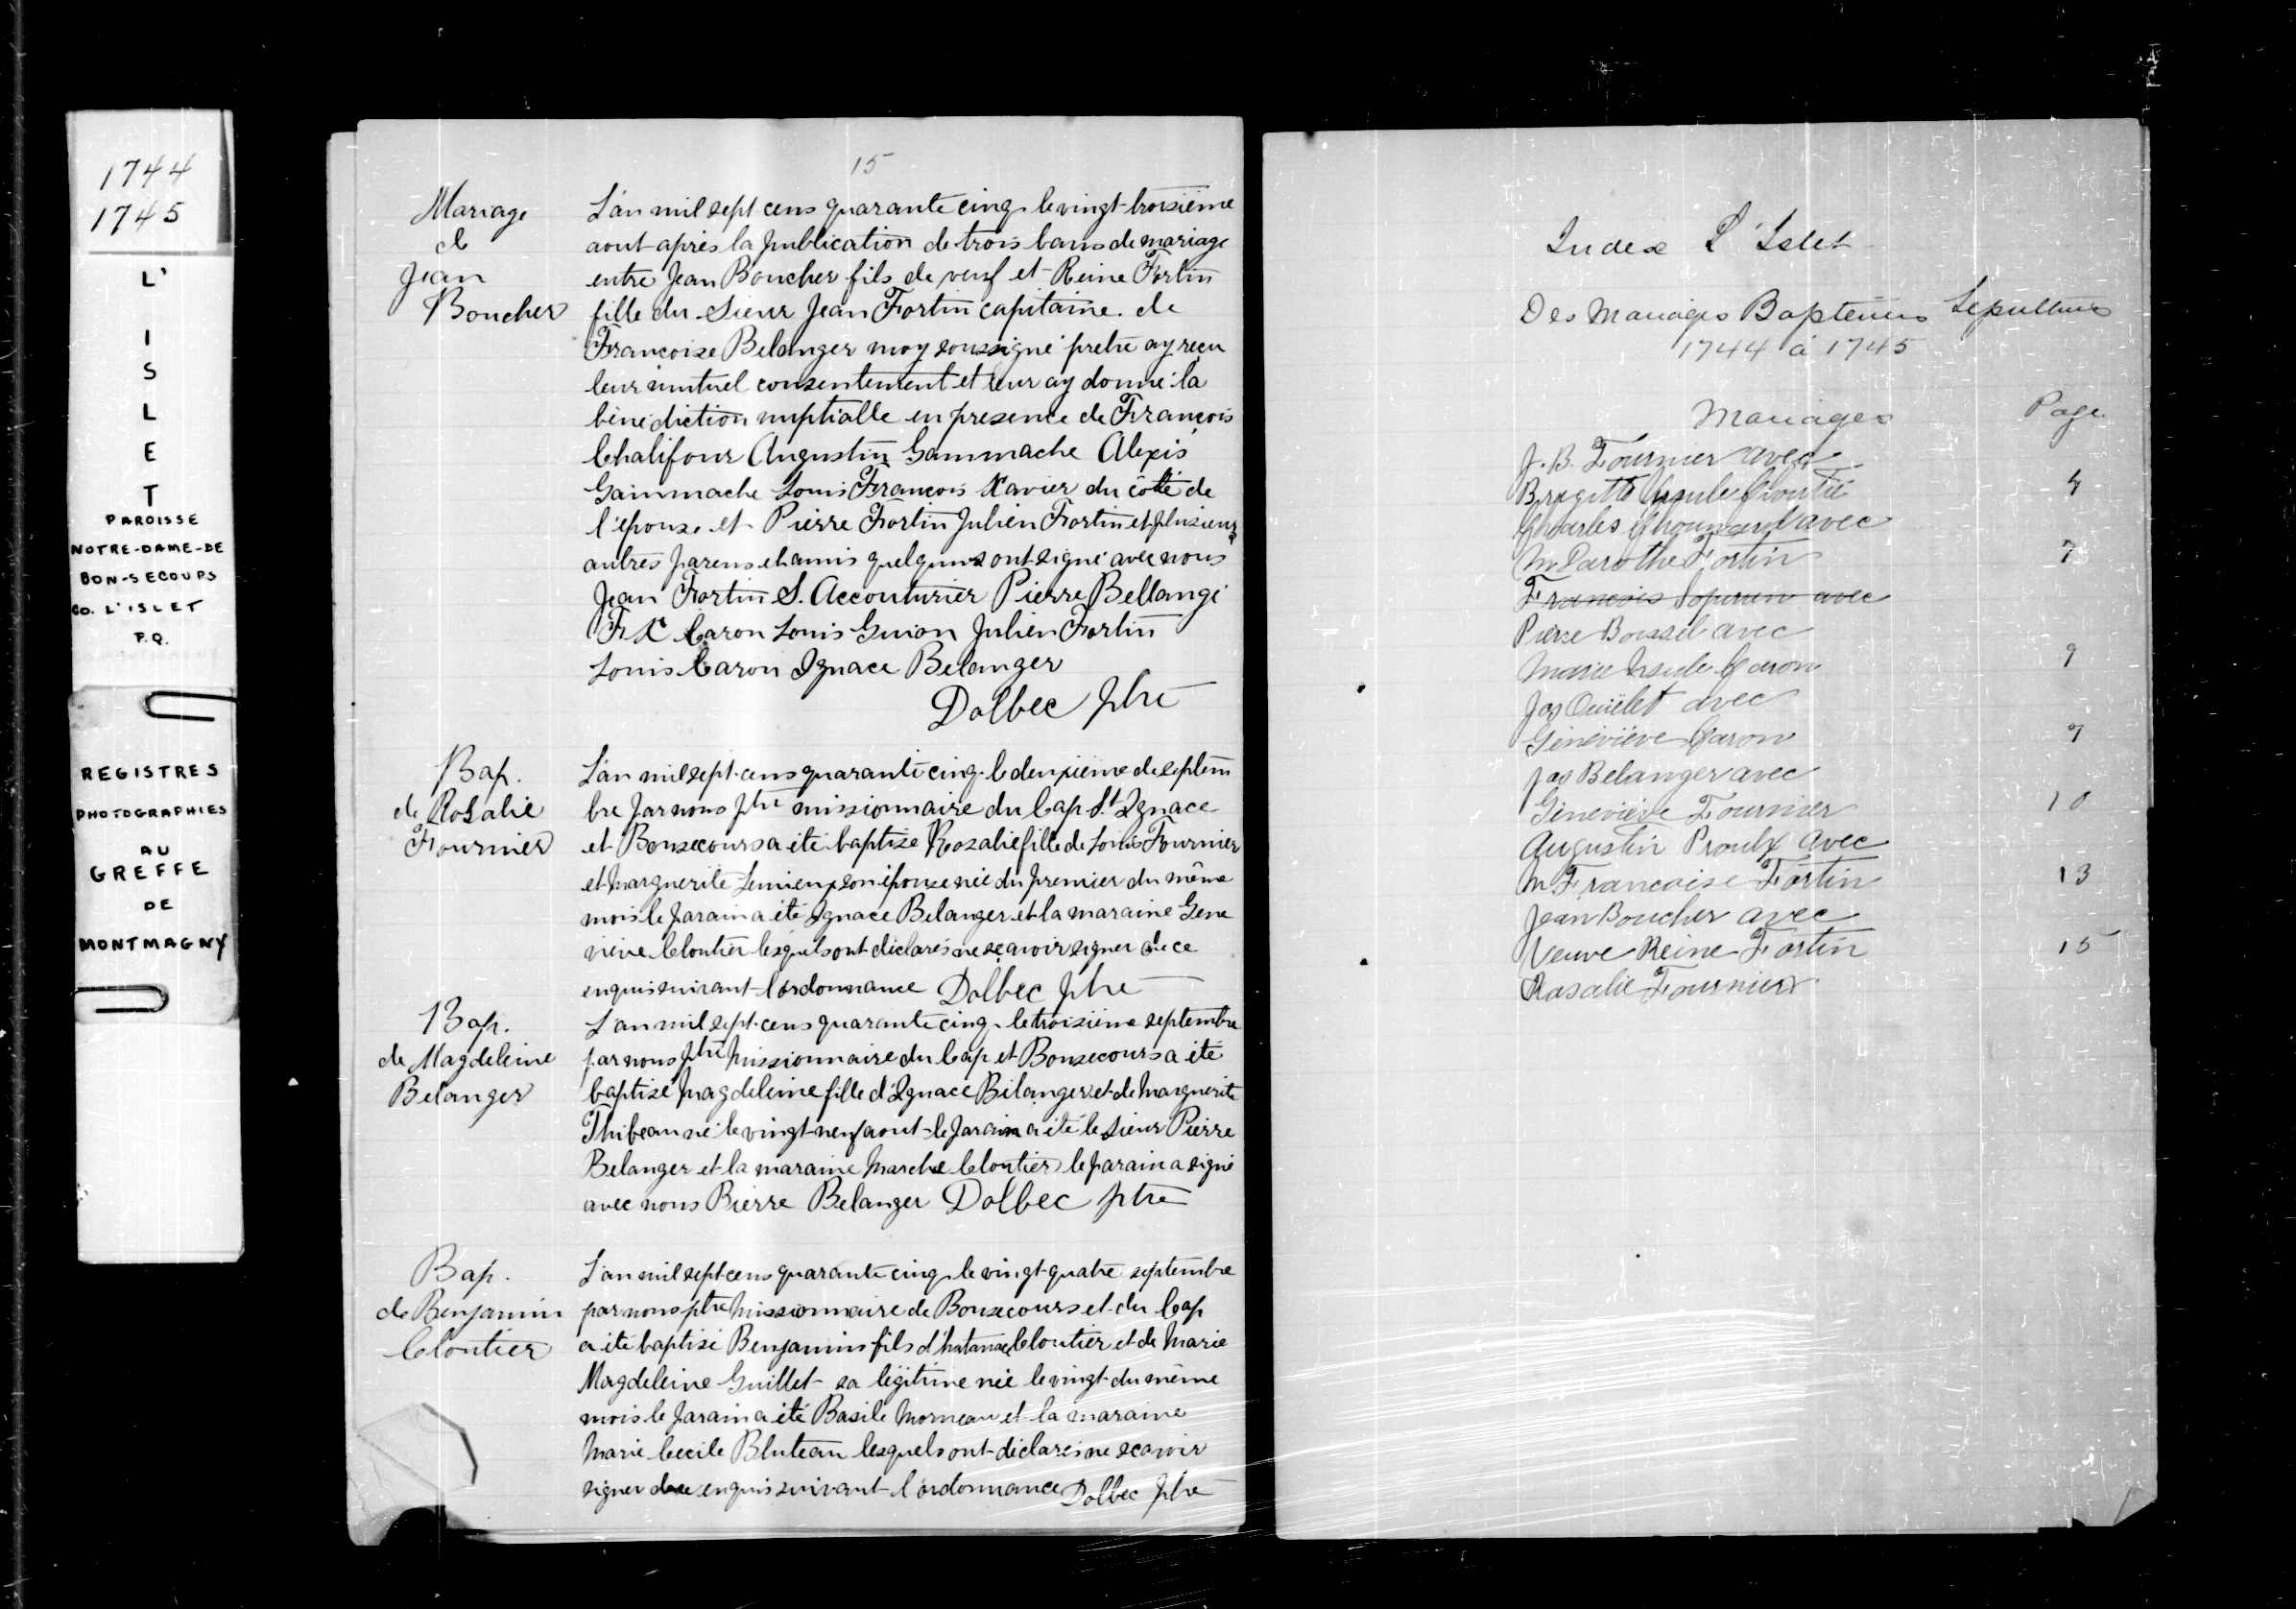 1744
1745
L'
I
S
L
E
T
PAROISSE
NOTRE-DAME-DE
BON-SECOURS
CO. L'ISLET
P.Q.
REGISTRES
PHOTOGRAPHIES
AU
GREFFE
DE
MONTMAGNY
15
Mariage
de
Jean
Boucher
L'an mil sept cens quarante cinq le vingt-troisième
aout après la publication de trois bans de mariage
entre Jean Boucher fils de veuf et Reine Fortin
fille du Sieur Jean Fortin capitaine de
Françoise Belanger moy soussigné pretre ay reçu
leur mutuel consentement et leur ay donné la
bénédiction nuptialle en presence de François
Chalifour Augustin Gammache Alexis
Gammache Louis François Xavier du côté de
l'épouse et Pierre Fortin Julien Fortin et plusieurs
autres parens et amis quelquns ont signé avec nous
Jean Fortin S. Accouturier Pierre Bellangé
F X Caron Louis Guion Julien Fortin
Louis Caron Ignace Belanger
Dolbec ptre
Bap.
de Rosalie
Fournier
L'an mil sept cens quarante cinq le deuxième de septem
bre par nous ptre missionnaire du Cap St Ignace
et Bonsecours a été baptisé Rosalie fille de Louis Fournier
et Marguerite Lemieux son épouse née du premier du même
mois le parain a été Ignace Belanger et la maraine Gene
viève Cloutier lesquels ont déclarés ne sçavoir signer de ce
enquis suivant l'ordonnance Dolbec ptre
Bap.
de Magdeleine
Belanger
L'an mil sept cens quarante cinq le troisième septembre
par nous ptre missionnaire du Cap et Bonsecours a été
baptisé Magdeleine fille d'Ignace Bélanger et de Marguerite
Thibeau né le vingt-neuf aout le parain a été le Sieur Pierre
Belanger et la maraine Marthe Cloutier le parain a signé
avec nous Pierre Belanger Dolbec ptre
Bap.
de Benjamin
Cloutier
L'an mil sept cens quarante cinq le vingt-quatre septembre
par nous ptre missionnaire de Bonsecours et du Cap
a été baptisé Benjamin fils Cloutier et de Marie
Magdeleine Guillet sa légitime née le vingt du même
mois le parain a été Basile Morneau et la maraine
Marie Cecile Bluteau lesquels ont déclarés ne sçavoir
signer de ce enquis suivant l'ordonnance Dolbec ptre
Index L'Islet
Des Mariages Baptemes Sepultures
1744 à 1745
Mariages Page
J. B. Fournier avec
Brigitte Ursule Cloutié 4
Charles Chouinard avec
M Darothe Fortin 7
François avec
Pierre Boissel avec
Marie Ursule Caron 9
Jos Ouëlet avec
Géneviève Caron 9
Jos Belanger avec
Géneviève Fournier 10
Augustin Proulx avec
M Francoise Fortin 13
Jean Boucher avec
Veuve Reine Fortin 15
Rosalie Fournier